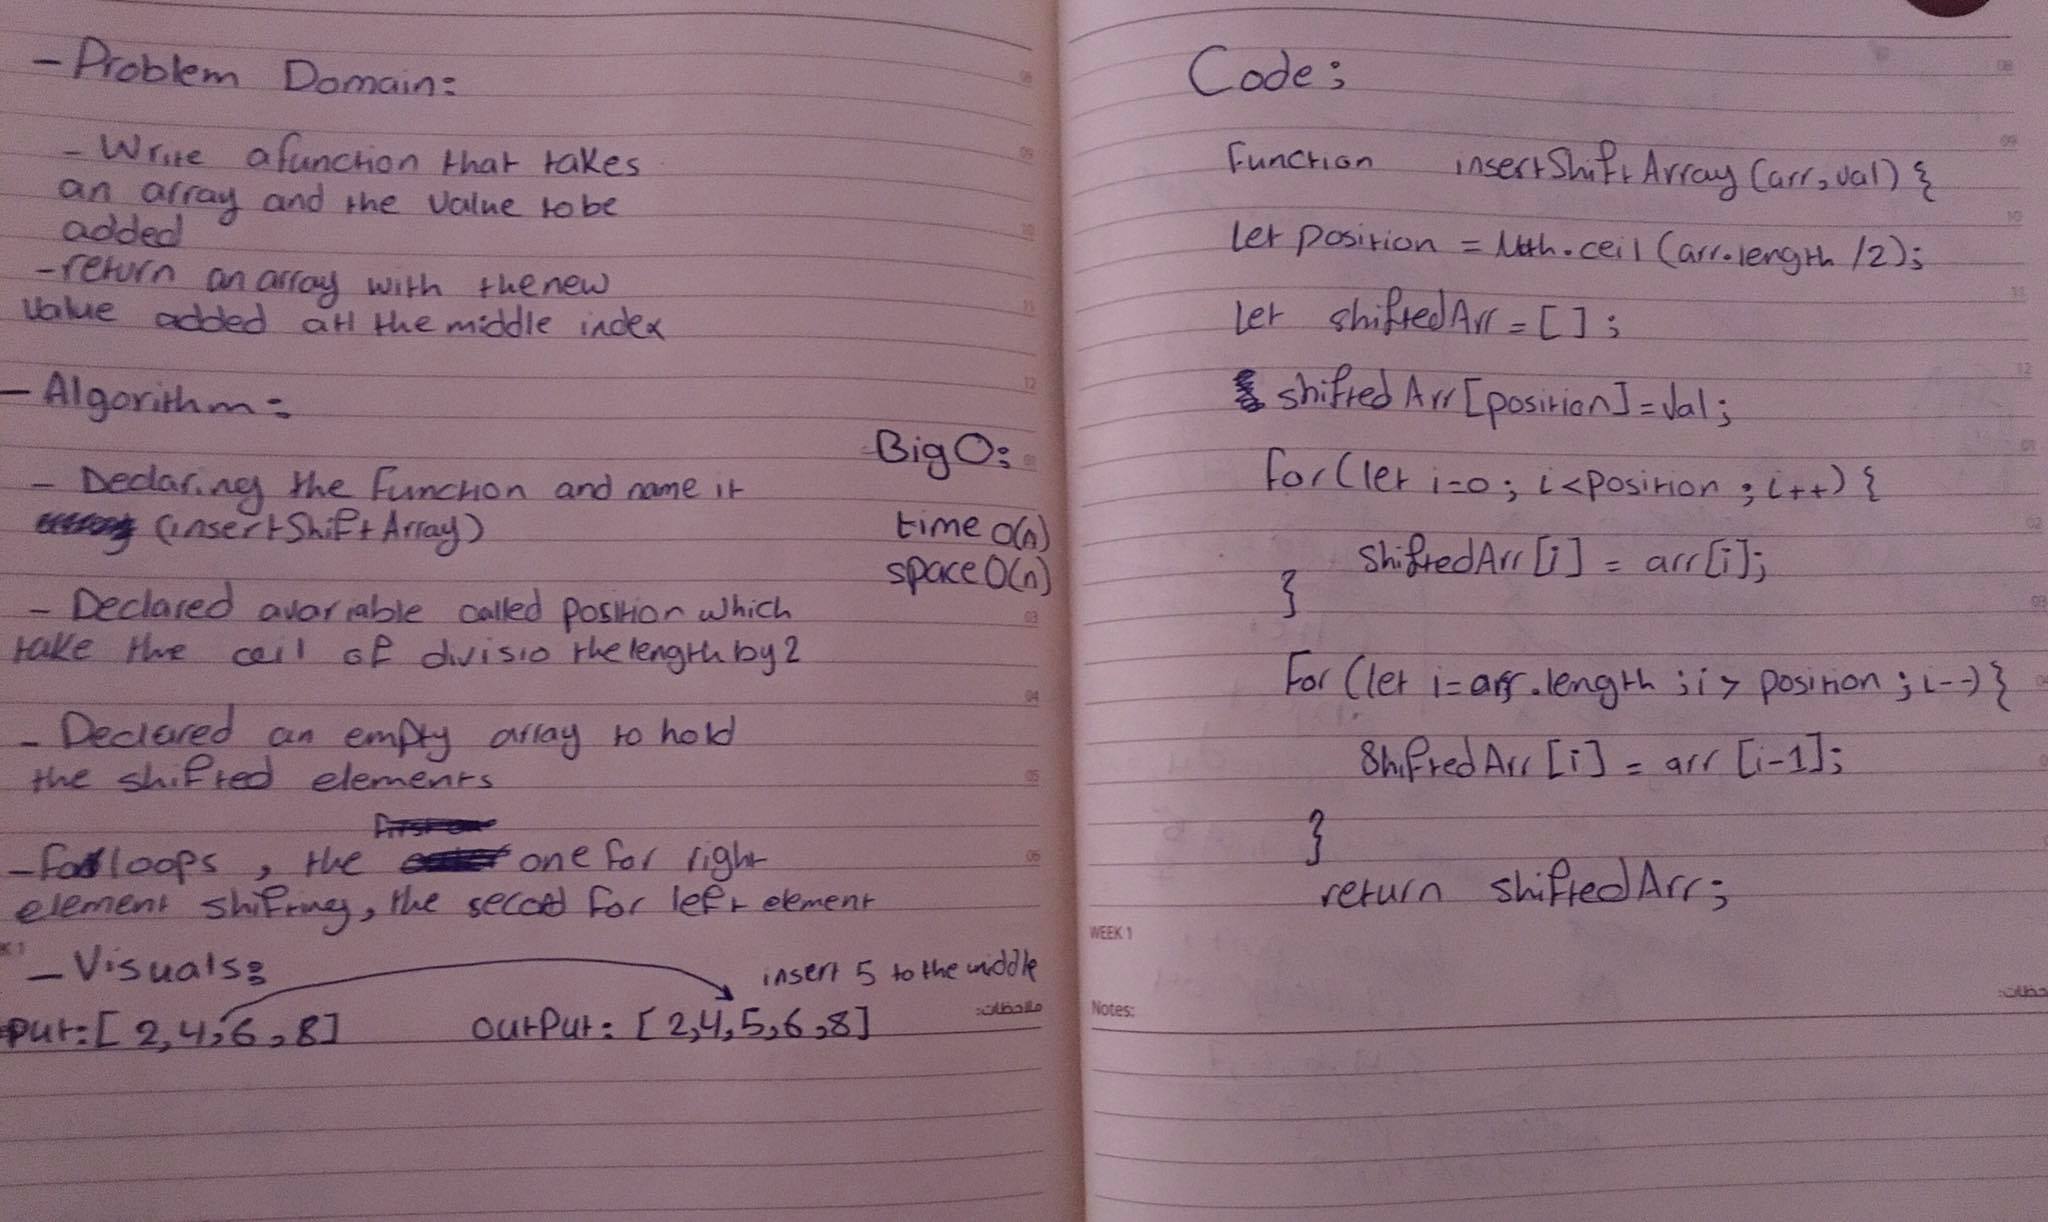 - Problem Domain:
- Write a function that takes
an array and the value to be
added
- return an array with the new
value added att the middle index
- Algorithm:
- Declaring the function and name it
(insertShiftArray)
Big O:
time O(n)
space O(n)
- Declared a variable called position which
take the ceil of divisio the length by 2
- Declared an empty array to hold
the shifted elements
- for loops, the one for right
element shifting, the second for left element
- Visuals:
put: [2,4,6,8] output: [2,4,5,6,8]
insert 5 to the middle
ملاحظات:
Code:
function insertShiftArray (arr, val) {
let position = Math.ceil (arr.length /2);
let shiftedArr = [ ];
shiftedArr [position] = val;
for (let i=0; i<position; i++) {
shiftedArr [i] = arr[i];
}
for (let i=arr.length; i> position; i--) {
shiftedArr [i] = arr [i-1];
}
return shiftedArr;
WEEK 1
Notes:
08
09
10
11
12
01
02
03
04
05
06